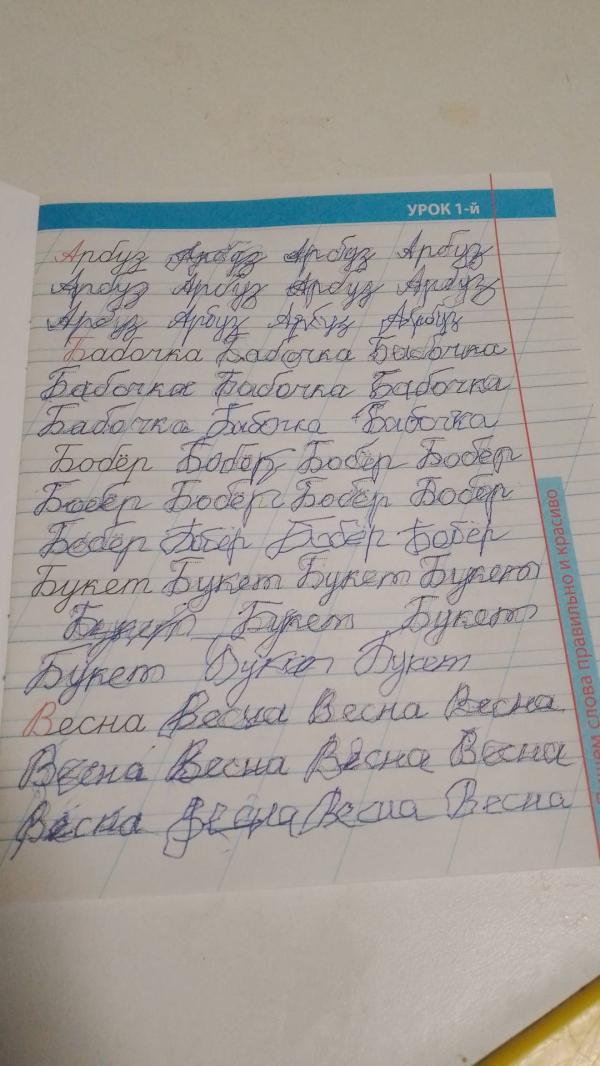 УРОК 1-й
Арбуз Арбуз Арбуз Арбуз
Арбуз Арбуз Арбуз Арбуз
Арбуз Арбуз Арбуз Арбуз
Бабочка Бабочка Бабочка
Бабочка Бабочка Бабочка
Бабочка Бабочка Бабочка
Бобёр Бобёр Бобёр Бобёр
Бобёр Бобёр Бобёр Бобёр
Бобёр Бобёр Бобёр Бобёр
Букет Букет Букет Букет
Букет Букет Букет
Букет Букет Букет
Весна Весна Весна Весна
Весна Весна Весна Весна
Весна Весна Весна Весна
слова правильно и красиво